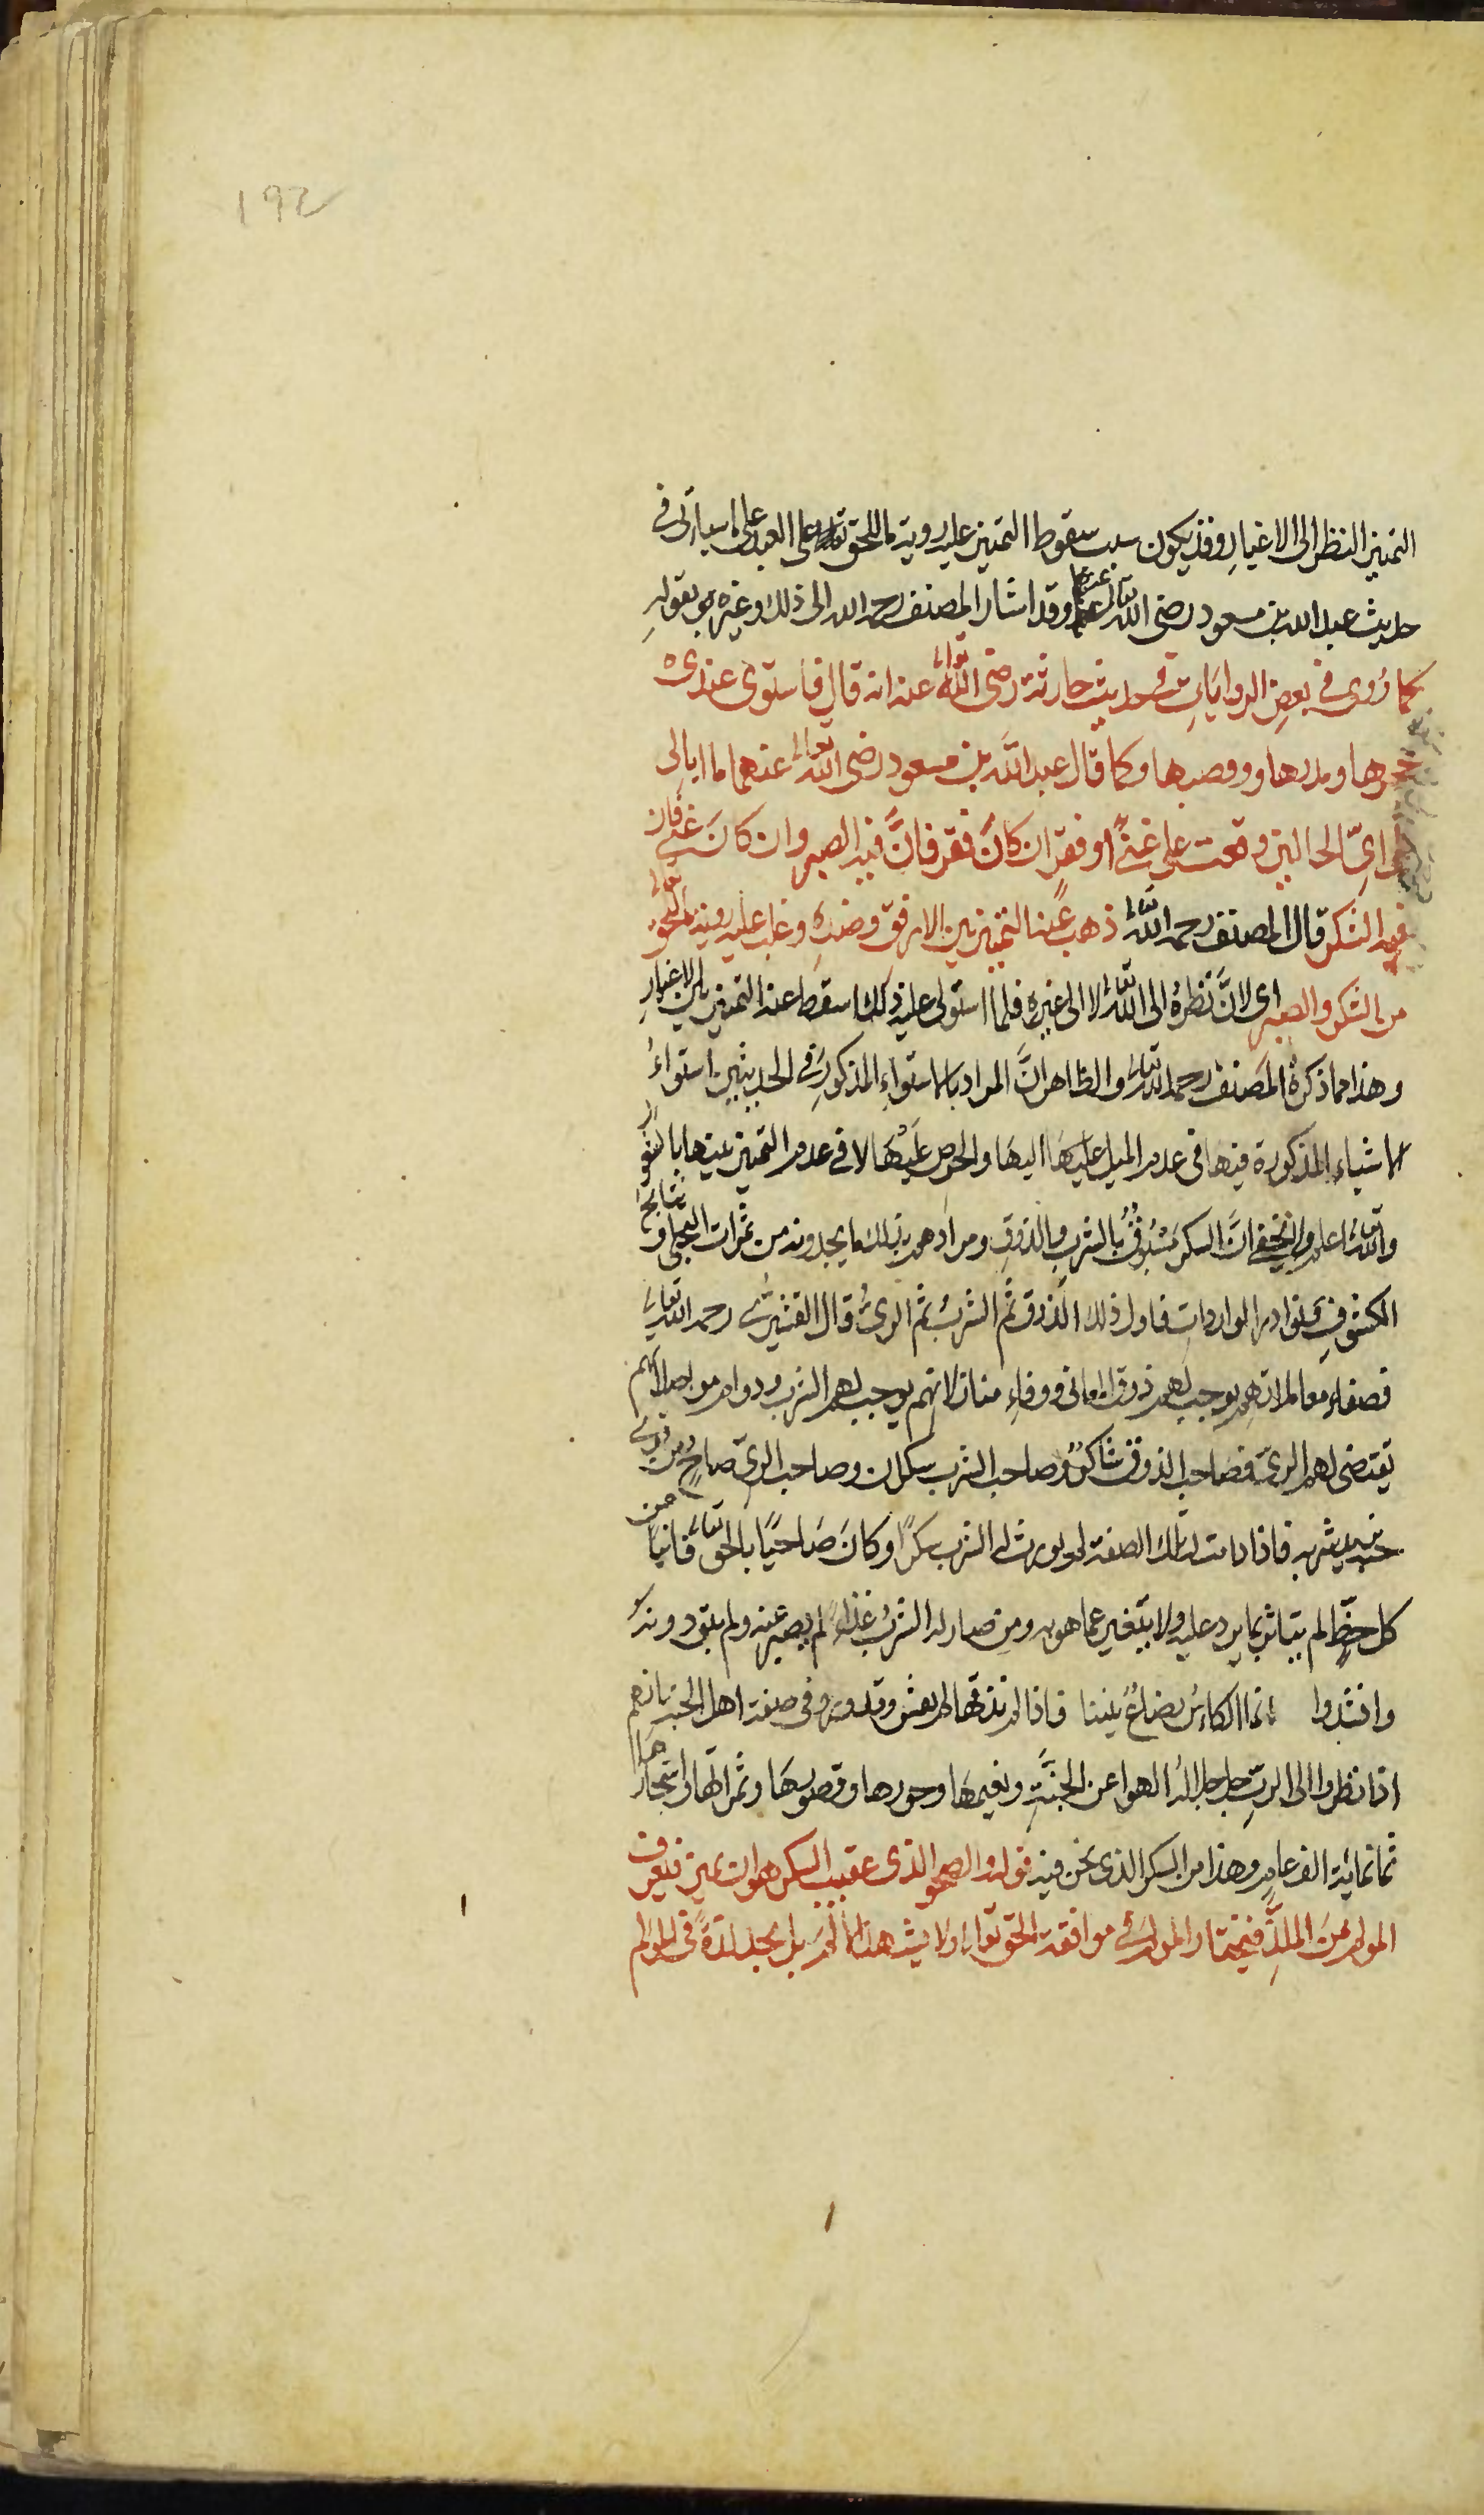 192
التمييز النظر الى الاغيار وقد يكون سبب سقوط التمييز عليه روية ما للحق تعالى على العبد على ما سياتى فى
حديث عبد الله بن مسعود رضى الله تعالى عنهما وقد اشار المصنف رحمه الله الى ذلك وغيره بقوله
كما رُوى فى بعضِ الرواياتِ فى حديث حارثة رضى الله تعالى عنه انه قال فاستوى عندى
حجرها ومدرها وقصبها وكما قال عبد الله بن مسعود رضى الله تعالى عنهما ما ابالى
على اىّ الحالين وقعت على غنًى او فقرٍ ان كانَ فقر فانَّ فيه الصبر وان كانَ غنى فان
فيه الشكر قال المصنف رحمه الله تعالى ذهب عنه التمييز بين الارفق وضده وغلب عليه روية ما للحق تعالى
من الشكر والصبر اى لانَّ نظرهُ الى الله تعالى لا الى غيره فلما استولى عليه ذلك سقط عنه التمييز بين الاغيارِ
وهذا مما ذكرهُ المصنف رحمه الله تعالى والظاهر انَّ المراد بالاستواء المذكور فى الحديثين استواءُ
الاشياء المذكورة فيها فى عدم الميل اليها والحرص عليها لا فى عدم التمييز بينها بالنو
والله تعالى اعلم ولا يخفى انَّ السكر مسبوقٌ بالشرب والذوق ومرادهم بذلك ما يجدونه من ثمرات التجلى ونتايج
الكشوفِ وبوادر الواردات فاول ذلك الذوق ثم الشربُ ثم الرىُّ قال القشيرى رحمه الله تعالى
فصفاء معاملاتهم يوجب لهم ذوق المعانى ووفاء منازلاتهم يوجب لهم الشرب ودوام مواصلاتهم
تقتضى لهم الرىّ فصاحب الذوق متساكر وصاحب الشرب سكران وصاحب الرىّ صاحٍ ومن قوى
حبه تسرمد شربه فاذا دامت له تلك الصفة لم يورث له الشرب سكرًا وكانَ صاحيًا بالحق تعالى فانيًا عن
كل حظٍّ لم يتاثر بما يرد عليه ولا يتغير عما هو به ومن صار له الشربُ غذاءً لم يصبر عنه ولم يتق دونه
وانشدوا انما الكاس رضاعٌ بيننا فاذا لم نذقها لم نعش وقد ورد فى صفة اهل الجنة انهم
اذا نظروا الى الربِ جل جلاله الهوا عن الجنَّةِ ونعيمها وحورها وقصورها وثمراتها واشجارها
ثمانمائة الف عام وهذا من السكر الذى نحن فيه قوله والصحو الذى عقيب السكر هو ان يميز فيعرف
المولم منَ الملذِّ فيختار المولم فى موافقة الحق تعالى ولا يشهد الالم بل يجد لذةً فى المولم